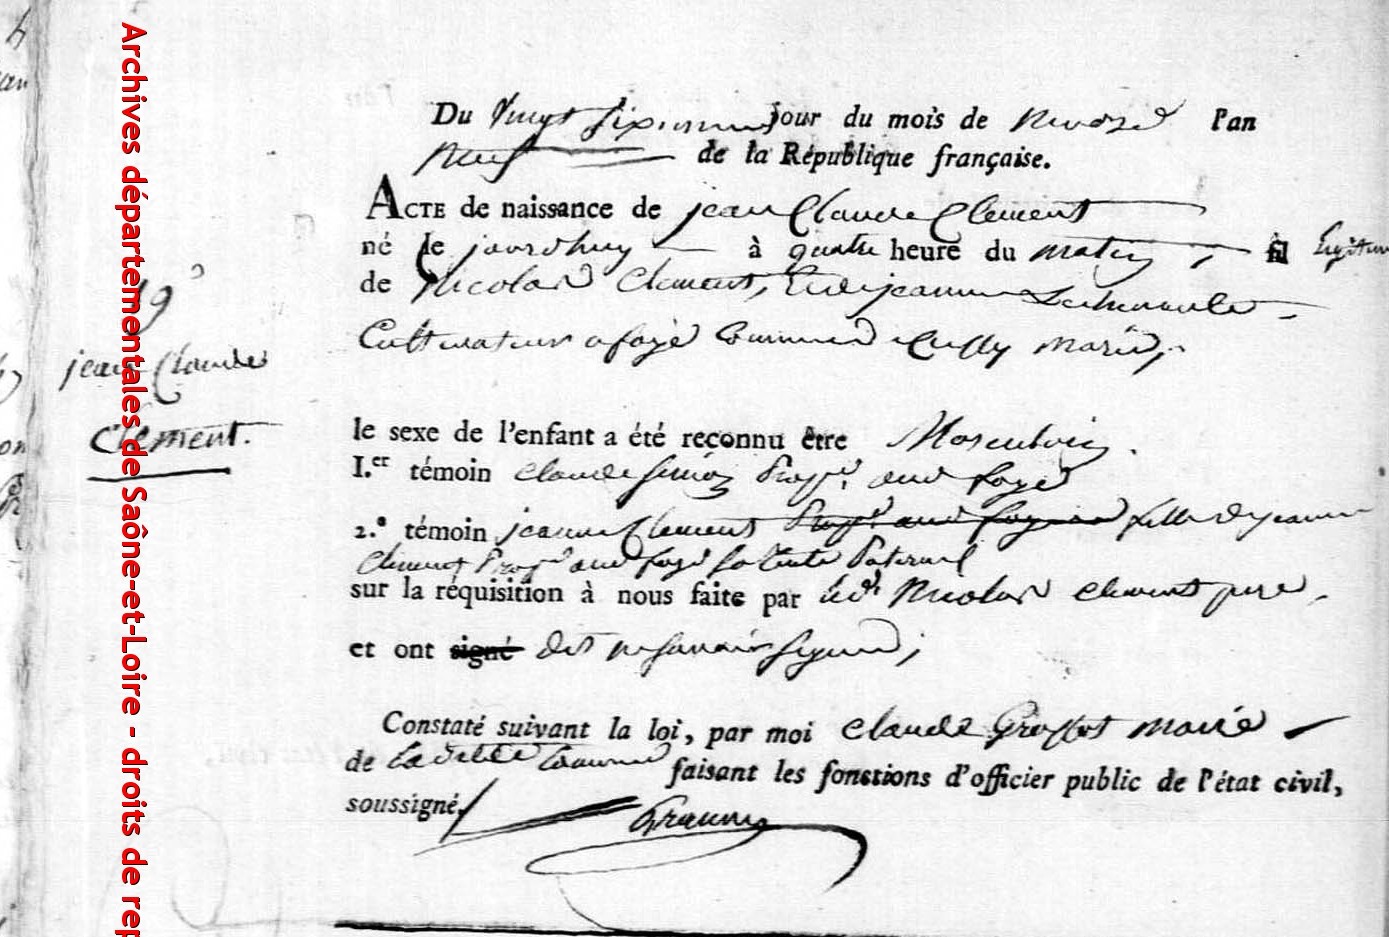 Archives départementales de Saône-et-Loire - droits de rep
Du Vingt sixieme jour du mois de nivose l'an
neuf de la République française.
ACTE de naissance de jean Claude Clement
né le jourdhuy à quatre heure du matin, fil legitime
de Nicolas Clement, et de jeanne
Cultivateur a fayé commune marié,
19
jean Claude
Clément.
le sexe de l'enfant a été reconnu être Masculin.
I.er témoin claude simon prop.re aud faye
2.e témoin jeanne Clement prop.re aud faye fille de jeanne
Clement prop.re aud faye sa tente paternel
sur la réquisition à nous faite par led.t Nicolas clement pere,
et ont signé dit ne savoir signer;
Constaté suivant la loi, par moi claude maire
de la dite commune faisant les fonctions d'officier public de l'état civil,
soussigné,